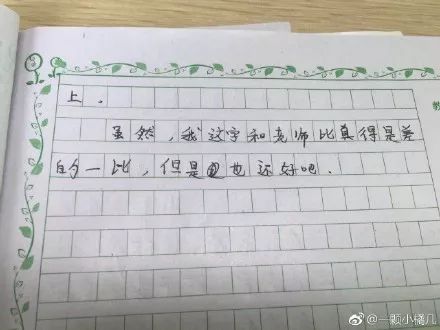 上.
虽然,我这字和老师比真得是差
的一比,但是也还好吧.
@一颗小桶几